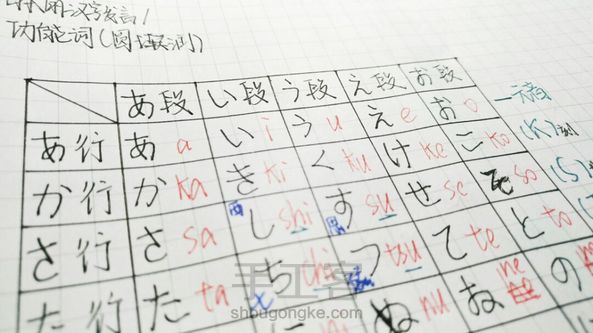 功能词(圆
あ段 い段 う段 え段 お段
あ行 あ a い i う u え e お o 一元音
か行 か ka き ki く ku け ke こ ko (K)
さ行 さ sa し shi す su せ se そ so (S)
た行 た ta ち chi つ tsu て te と to
ぬ nu ね ne の
手工客
shougongke.com